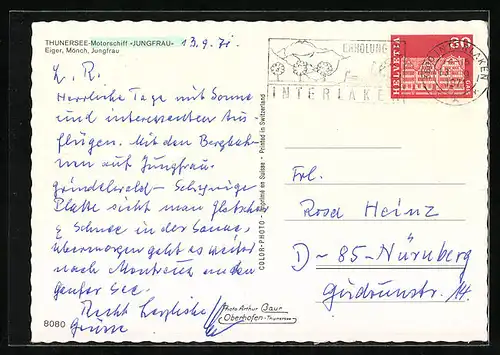 THUNERSEE-Motorschiff «JUNGFRAU»
Eiger, Mönch, Jungfrau
13.9.71
L. R.
Herrliche Tage mit Sonne
und interessanten Aus
flügen. Mit den Bergbah
nen auf Jungfrau
Grindelwald – Schynige
Platte sieht man Gletscher
& Schnee in der Sonne,
übermorgen geht es weiter
nach Montreux an den
Genfer See.
Recht herzliche
Grüsse
8080
COLOR-PHOTO - Imprimé en Suisse - Printed in Switzerland
Photo Arthur Baur
Oberhofen-Thunersee
ERHOLUNG
INTERLAKEN
HELVETIA
30
INTERLAKEN
Frl.
Rosa Heinz
D-85-Nürnberg
Gudrunstr. 14.